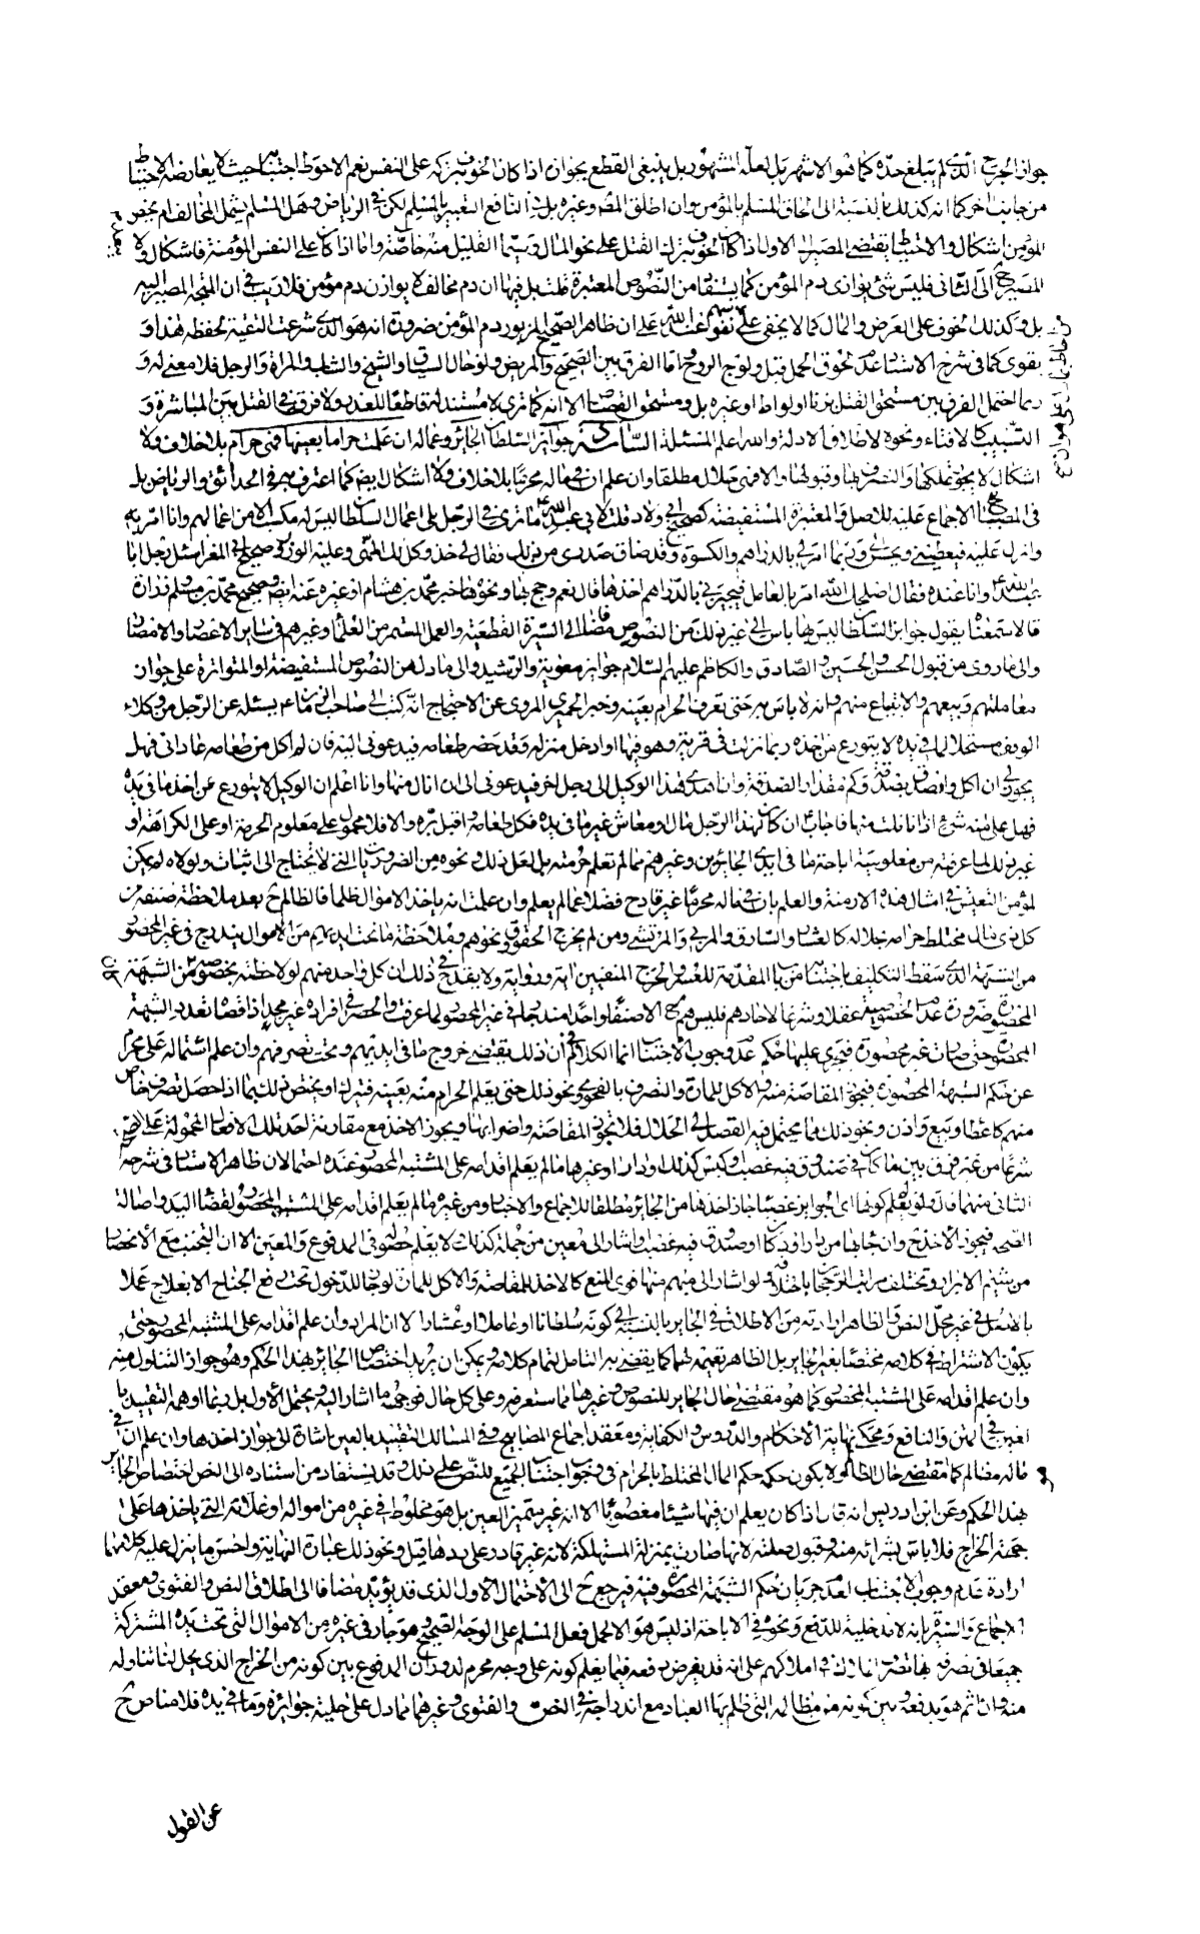 جواز الجرح الذى لم يبلغ حده كما هو الاشهر بل لعله المشهور بل ينبغى القطع بجوازه اذا كان الخوف بتركه على النفس نعم الاحوط اجتنابه حيث لا يعارضه الاحتياط
من جانب اخر كما انه كذلك بالنسبة الى الحاق المسلم بالمؤمن وان اطلق المصـ وغيره بل فى النافع التعبير بالمسلم لكن فى الرياض وهل المسلم يشمل المخالف ام يخص
المؤمن اشكال والاحتياط يقتضى المصير الى الاول اذا كان الخوف بترك القتل على نحو المال وسيما القليل منه خاصة واما اذا كان على النفس المؤمنة فاشكال ولا
المصير ح الى الثانى فليس شئ يوازى دم المؤمن كما يستفاد من النصوص المعتبرة قلت بل فيها ان دم مخالف لا يوازن دم مؤمن فلا ريب فى ان المتجه المصير اليه
بل وكذلك الخوف على العرض والمال كما لا يخفى على على ان ظاهر الصحيح المزبور دم المؤمن ضرورة انه هو الذى شرعت التقية لحفظه هذا و
يقوى كما فى شرح الاستاد عدم لحوق الحمل قبل ولوج الروح اما الفرق بين الصحيح والمريض ولو حال السياق والشيخ والشاب والمراة والرجل فلا معنى له و
ربما احتمل الفرق بين مستحق القتل بزنا او لواط او غيره بل ومستحق القصاص الا انه كما ترى لا مستند له قاطعا للعذر ولا فرق فى القتل بين المباشرة و
التسبيب كالافتاء ونحوه لاطلاق الادلة والله اعلم المسئلة السادسة جوائز السلطان الجائر وعماله ان علمت حراما بعينها فهى حرام بلا خلاف ولا
اشكال لا يجوز تملكها والتصرف بها وقبولها والا فهى حلال مطلقا وان علم ان فى ماله محرما بلا خلاف ولا اشكال ايضـ كما اعترف به فى الحدائق والرياض بل
فى المصابيح الاجماع عليه للاصل والمعتبرة المستفيضة كصحيح ابى ولاد قلت لابى عبد الله ع ما ترى فى الرجل يلى اعمال السلطان ليس له مكسب الا من اعمالهم وانا امر به
وانزل عليه فيضيفنى ويحسن الى وربما امر لى بالدراهم والكسوة وقد ضاق صدرى من ذلك فقال لى خذ وكل لك المهنى وعليه الوزر وفى صحيح ابى المغرا سئل رجل ابا
عبد الله ع وانا عنده فقال اصلحك الله امر بالعامل فيجيزنى بالدراهم اخذها قال نعم وحج بها ونحوها خبر محمد بن هشام او غيره عنه ايضـ وصحيح محمد بن مسلم وزرارة
قالا سمعناه يقول جوائز السلطان ليس بها باس الى غير ذلك من النصوص مضافا الى السيرة القطعية والعمل المستمر من العلماء وغيرهم فى ساير الاعصار والامصار
والى ما روى من قبول الحسن والحسين والصادق والكاظم عليهم السلام جوائز معوية والرشيد والى ما دل من النصوص المستفيضة او المتواترة على جواز
معاملتهم وبيعهم والابتياع منهم وانه لا باس به حتى تعرف الحرام بعينه وخبر الحميرى المروى عن الاحتجاج انه كتب الى صاحب الزمان ع يسئله عن الرجل من وكلاء
الوقف مستحلا لما فى يده لا يتورع عن اخذه ربما نزلت فى قرية وهو فيها او ادخل منزله وقد حضر طعامه فيدعونى اليه فان لم اكل من طعامه عادانى فهل
يجوز لى ان اكل واتصدق بصدقة وكم مقدار الصدقة وان اهدى هذا الوكيل الى رجل اخر فيدعونى الى ان انال منها وانا اعلم ان الوكيل لا يتورع عن اخذ ما فى يده
فهل على منه شئ اذا نلت منها فاجاب ان كان لهذا الرجل مال او معاش غير ما فى يده فكل طعامه واقبل بره والا فلا محمول على معلوم الحرمة او على الكراهة او
غير ذلك لما عرفته من معلومية اباحة ما فى ايدى الجائرين وغيرهم مما لم تعلم حرمته بل لعل ذلك ونحوه من الضروريات التى لا تحتاج الى اثبات ولولاه لم يمكن
لمؤمن التعيش فى امثال هذه الازمنة والعلم بان فى ماله محرما غير قادح فضلا عما لم يعلم وان علمت انه ياخذ الاموال ظلما فالظالم ح بعد ملاحظة صنفه من
كل ذى مال مختلط حرامه بحلاله كالعشار والسارق والمربى والمرتشى ومن لم يخرج الحقوق ونحوهم وملاحظة ما تحت ايديهم من الاموال يندرج فى غير المحصور
من الشبهة الذى سقط التكليف باجتنابها من باب المقدمة للعسر والحرج المنفيين اية ورواية ولا يقدح فى ذلك ان كل واحد منهم لو لاحظته بخصوصه من الشبهة
المحصورة ضرورة عدم الخصوصية عقلا وشرعا لآحادهم فليس هم ح الا صنفا واحدا مندرجا فى غير المحصور لما عرفت والحصر فى افراده غير مجد اذ اقصاه تعدد الشبهة
المحصورة حتى صارت غير محصورة فيجرى عليها حكم عدم وجوب الاجتناب انما الكلام فى ان ذلك يقتضى خروج ما فى ايديهم وتحت تصرفهم وان علم اشتماله على محرم
عن حكم الشبهة المحصورة فيجوز المقاصة منه والاكل للمارة والتصرف بالفحوى ونحو ذلك حتى يعلم الحرام منه بعينه فيترك او يختص ذلك بما اذا حصل تصرف خاص
منهم كاعطاء وبيع واذن ونحو ذلك مما يحتمل فيه القصد الى الحلال فلا يجوز المقاصة واضرابها ويجوز الاخذ مع مقارنة احد تلك الافعال المحمولة على الصحيح
شرعا من غير فرق بين ما كان فى صندوق فيه غصب او كيس كذلك او دار او غيرها ما لم يعلم اقدامه على المشتبه المحصور عنده احتمالان ظاهر الاستاد فى شرحه
الثانى منهما قال ولو لم يعلم كونها اى الجوائز غصبا جاز اخذها من الجائر مطلقا للاجماع والاخبار ومن غيره ما لم يعلم اقدامه على المشتبه المحصور لقضاء اليد واصالة
الصحة فيجوز الاخذ ح وان
من شيم الابرار وتختلف مراتب الرجحان باختلافه ولو اشار الى مبهم منها قوى المنع كالاخذ للمقاصة والاكل للمارة
بالاصل فى غير محل النص والظاهر ارادته من الاطلاق فى الجائر بالنسبة الى كونه سلطانا او عاملا او عشارا لا ان المراد وان علم اقدامه على المشتبه المحصور حتى
يكون الاشتراط فى كلامه مختصا بغير الجائر بل الظاهر تعميمه لهما كما يقضى به التامل لتمام كلامه ويمكن ان يريد اختصاص الجائر بهذا الحكم وهو جواز التناول منه
وان علم اقدامه على المشتبه المحصور كما هو مقتضى حال الجائر للنصوص وغيرها مما ستعرفه وعلى كل حال فوجهه ما اشار اليه ويحتمل الاول بل ربما اوهمه التقييد بالعين
فى المتن والنافع ومحكى نهاية الاحكام والدروس والكفاية ومعقد اجماع المصابيح وفى المسالك التقييد بالعين اشارة الى جواز اخذها وان علم ان فى
ماله مظالم كما هو مقتضى حال الظالم ولا يكون حكمه حكم المال المختلط بالحرام فى وجوب اجتناب الجميع للنص على ذلك وقد يستفاد من استناده الى النص اختصاص الجائر
بهذا الحكم وعن ابن ادريس انه قال اذا كان يعلم ان فيها شيئا مغصوبا الا انه غير متميز العين بل هو مخلوط فى غيره من امواله او غلاته التى ياخذها على
جهة الخراج فلا باس بشرائه منه وقبول صلته لانها صارت بمنزلة المستهلكة لانه غير قادر على ردها قيل ونحو ذلك عبارة النهاية واحسن ما ينزل عليه كلامهما
ارادة عدم وجوب الاجتناب لعدم جريان حكم الشبهة المحصورة فيه فيرجع ح الى الاحتمال الاول الذى قد يؤيد مضافا الى اطلاق النص والفتوى ومعقد
الاجماع والسيرة بانه لا مدخلية للدفع ونحوه فى الاباحة اذ ليس هو الا لحمل فعل المسلم على الوجه الصحيح وهو جار فى غيره من الاموال التى تحت يده المشتركة
جميعا فى تصرفه بها تصرف الملاك فى املاكهم على انه قد يفرض دفعه فيما يعلم كونه على وجه محرم لدوران المدفوع بين كونه من الخراج الذى يحل لنا تناوله
منه وان اثم هو بدفعه وبين كونه من مظالمه التى ظلم بها العباد مع اندراجه فى النص والفتوى وغيرهما مما دل على حلية جوائزه وما فى يده فلا مناص ح
عن القول